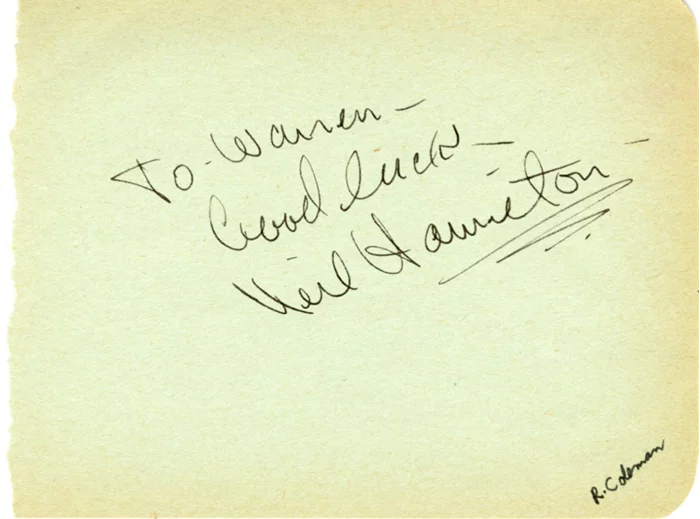 To Warren –
Good luck –
Neil Hamilton –
R. Coleman